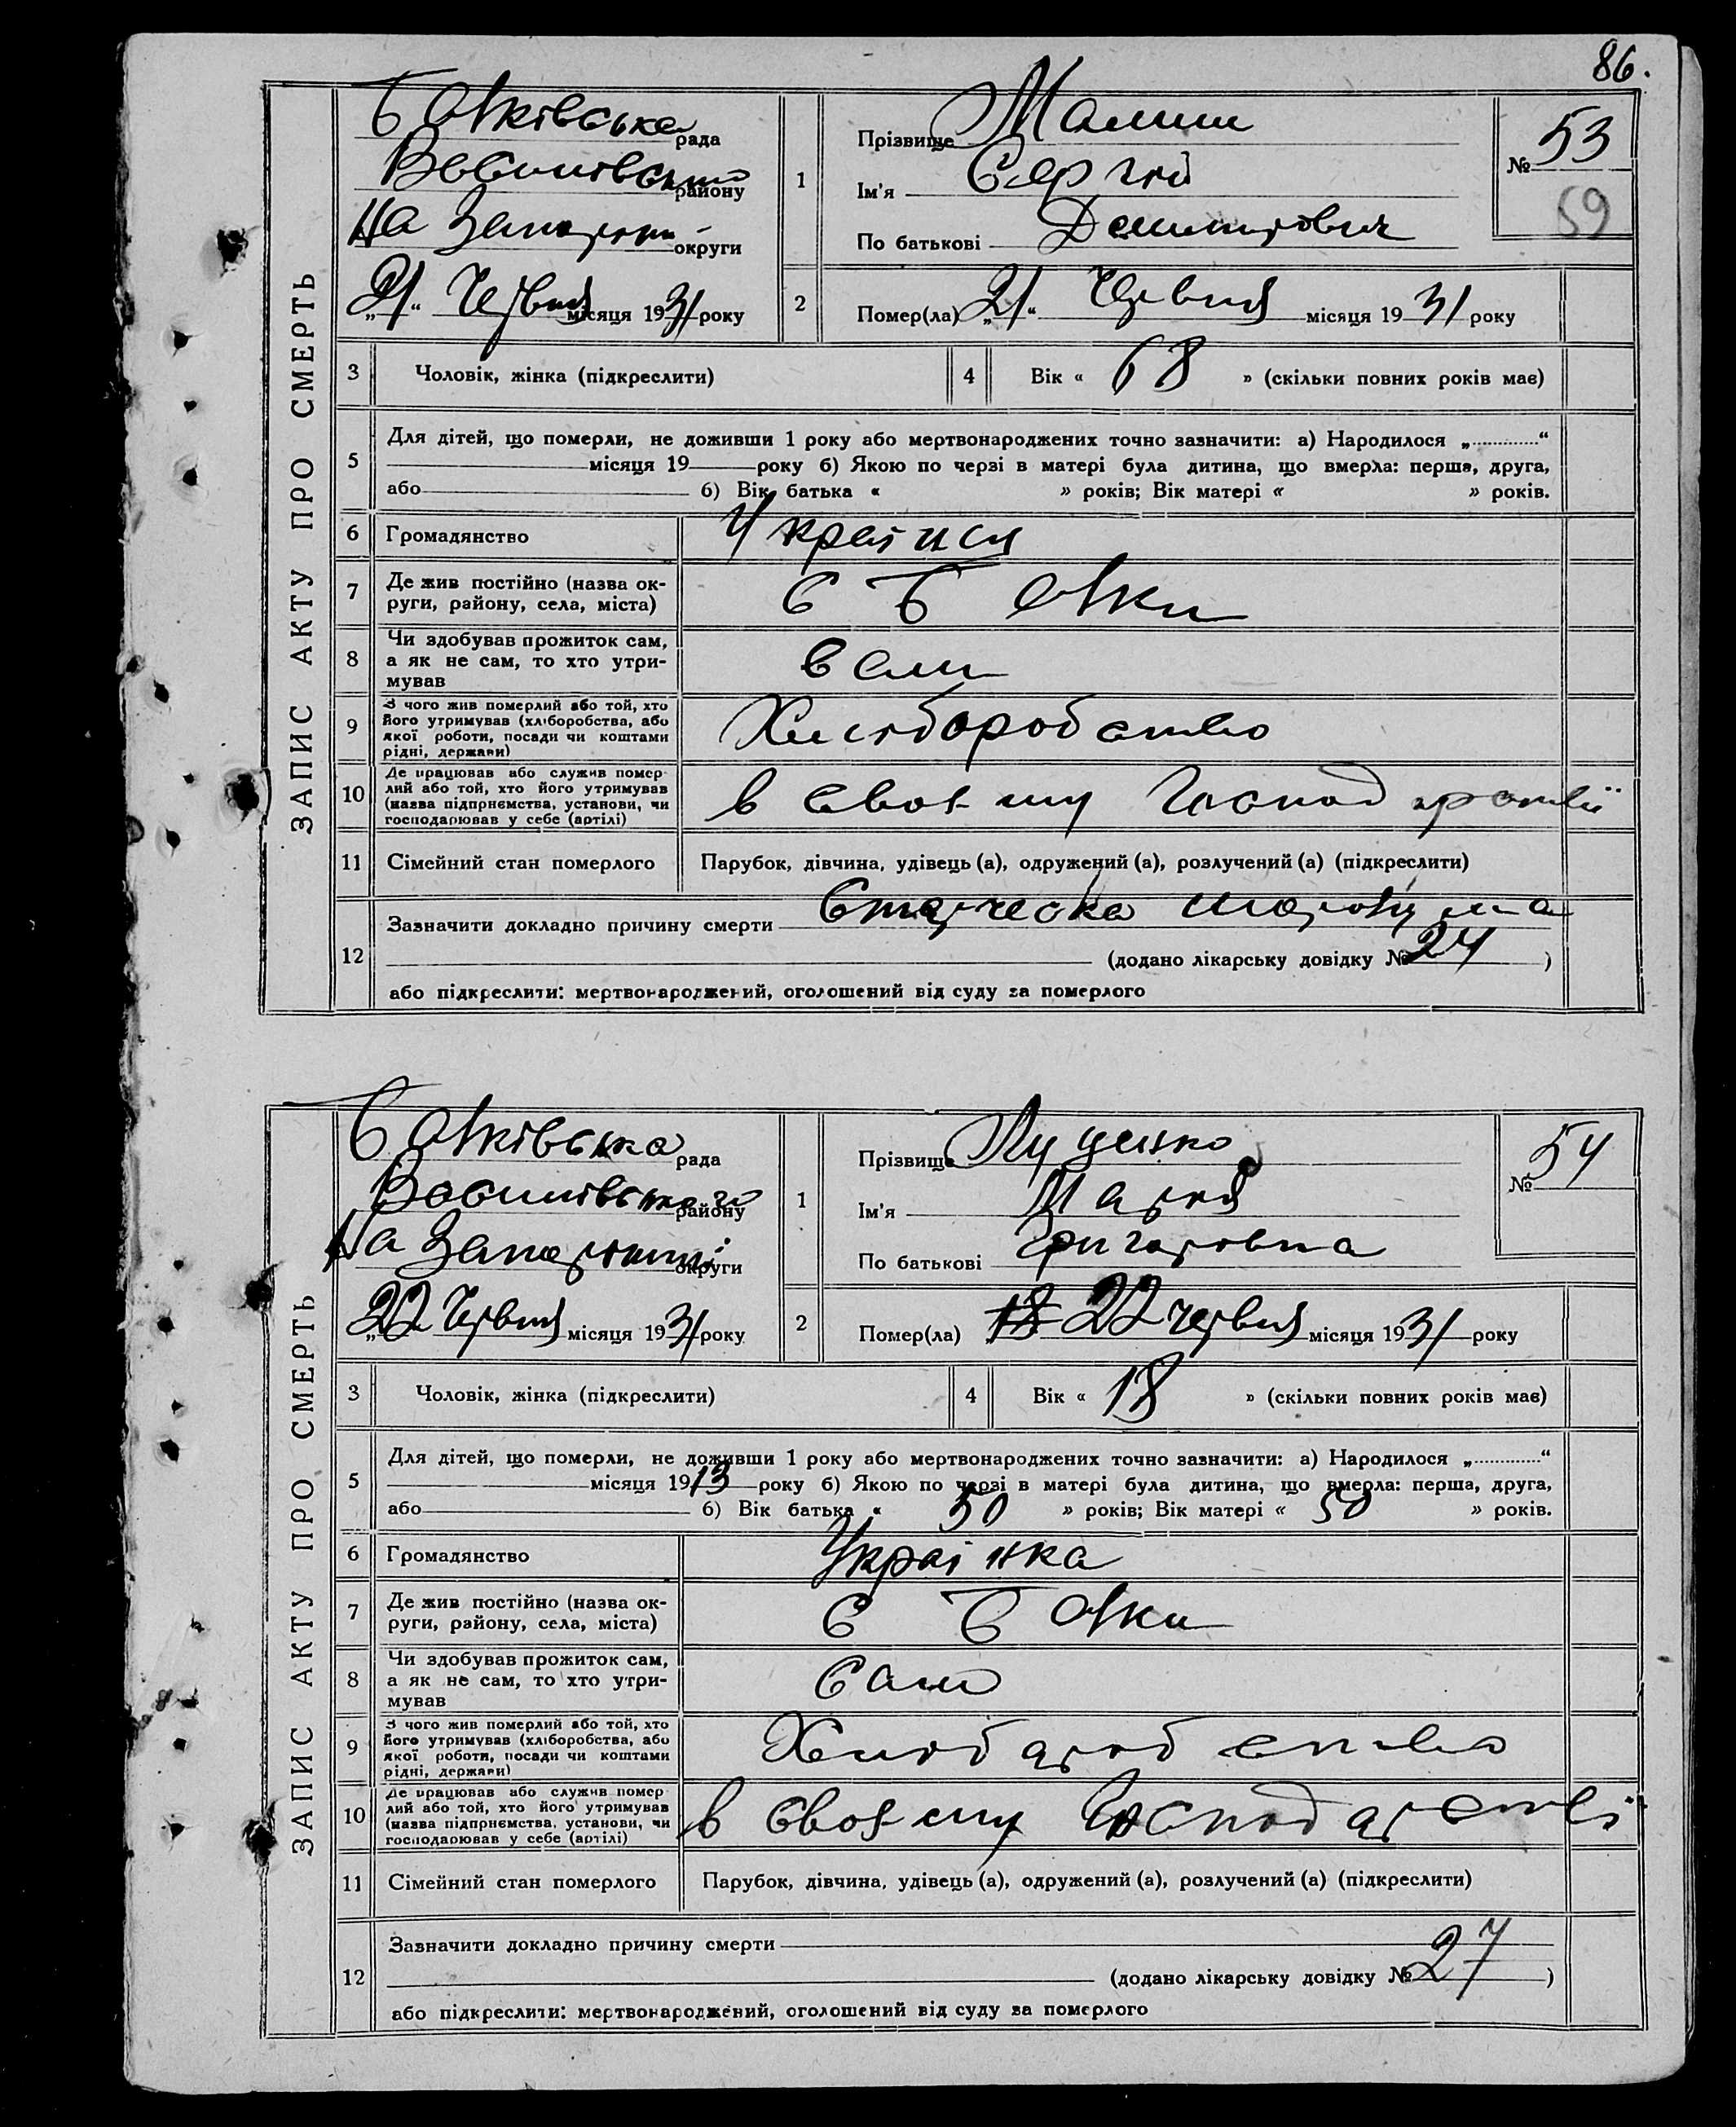 86.
ЗАПИС АКТУ ПРО СМЕРТЬ
Балківська рада
Василівського району
На Запоріжжі округи
„21“ Червня місяця 1931 року
1
Прізвище Малиш
Ім'я Сергій
По батькові Демитрович
№ 53
59
2
Помер(ла) „21“ Червня місяця 1931 року
3 Чоловік, жінка (підкреслити)
4 Вік « 68 » (скільки повних років має)
5
Для дітей, що померли, не доживши 1 року або мертвонароджених точно зазначити: а) Народилося „ “
місяця 19 року б) Якою по черзі в матері була дитина, що вмерла: перша, друга,
або б) Вік батька « » років; Вік матері « » років.
6 Громадянство
7 Де жив постійно (назва ок-
руги, району, села, міста) С Балки
8 Чи здобував прожиток сам,
а як не сам, то хто утри-
мував
9 З чого жив померлий або той, хто
його утримував (хліборобства, або
якої роботи, посади чи коштами
рідні, держави) Хліборобство
10 Де працював або служив помер-
лий або той, хто його утримував
(назва підприємства, установи, чи
господарював у себе (артілі) в своєму
11 Сімейний стан померлого Парубок, дівчина, удівець (а), одружений (а), розлучений (а) (підкреслити)
12
Зазначити докладно причину смерти
(додано лікарську довідку № 24 )
або підкреслити: мертвонароджений, оголошений від суду за померлого
ЗАПИС АКТУ ПРО СМЕРТЬ
Балківська рада
Василівського району
На Запоріжжі округи
„22 Червня місяця 1931 року
1
Прізвище Луценко
Ім'я Марія
По батькові Григоровна
№ 54
2
Помер(ла) 18 22 червня місяця 1931 року
3 Чоловік, жінка (підкреслити)
4 Вік « 18 » (скільки повних років має)
5
Для дітей, що померли, не доживши 1 року або мертвонароджених точно зазначити: а) Народилося „ “
місяця 1913 року б) Якою по черзі в матері була дитина, що вмерла: перша, друга,
або б) Вік батька « 50 » років; Вік матері « 50 » років.
6 Громадянство Українка
7 Де жив постійно (назва ок-
руги, району, села, міста) С Балки
8 Чи здобував прожиток сам,
а як не сам, то хто утри-
мував Сама
9 З чого жив померлий або той, хто
його утримував (хліборобства, або
якої роботи, посади чи коштами
рідні, держави) Хліборобство
10 Де працював або служив помер-
лий або той, хто його утримував
(назва підприємства, установи, чи
господарював у себе (артілі) в своєму
11 Сімейний стан померлого Парубок, дівчина, удівець (а), одружений (а), розлучений (а) (підкреслити)
12
Зазначити докладно причину смерти
(додано лікарську довідку № 27 )
або підкреслити: мертвонароджений, оголошений від суду за померлого